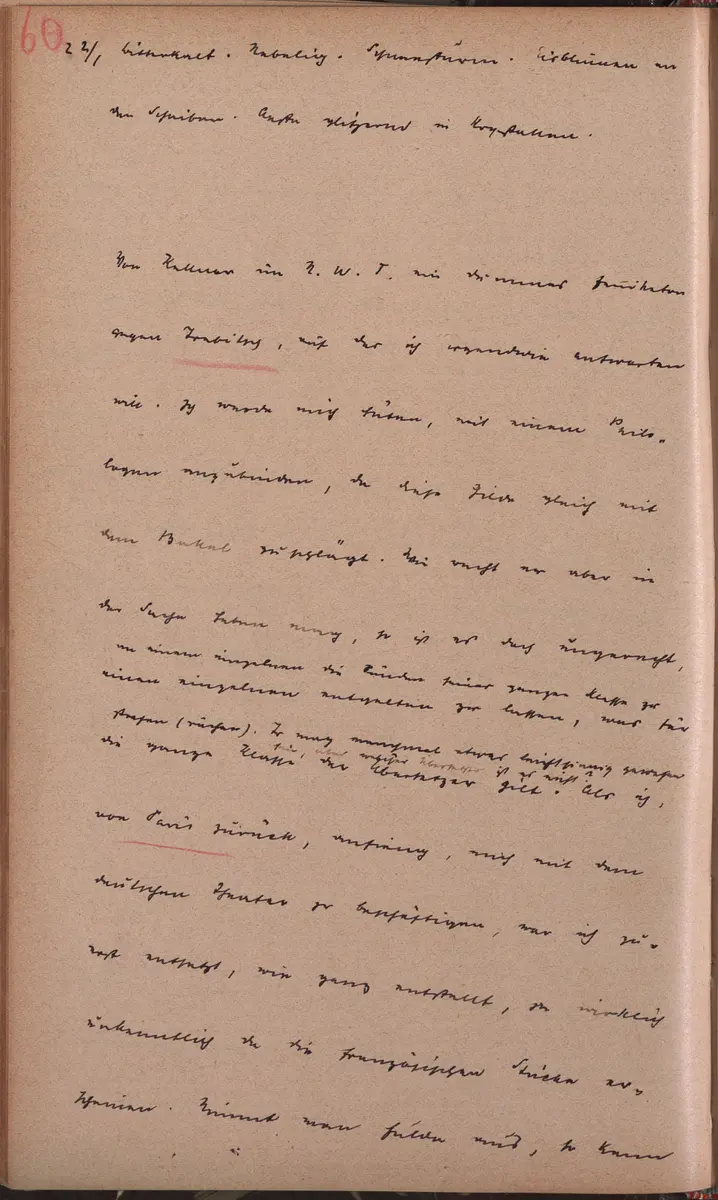 60
22/1 bitterkalt. Nebelig. Schneesturm. Eisblumen an
den Scheiben. Aeste glitzernd in Krystallen.
Von Kellner im N. W. T. ein dummes Feuilleton
gegen Trebitsch, auf das ich irgendwie antworten
will. Ich werde mich hüten, mit einem Philo-
logen anzubinden, da diese Gilde gleich mit
dem Bakel zuschlägt. Wie recht er aber in
der Sache haben mag, so ist es doch ungerecht,
an einem einzelnen die Sünden seiner ganzen Klasse zu
einen einzelnen entgelten zu lassen, was für
strafen (rächen). Er mag manchmal etwas leichtsinnig gewesen
sein, aber welcher Übersetzer ist es nicht?
die ganze Klasse der Übersetzer gilt. Als ich,
von Paris zurück, anfieng, mich mit dem
deutschen Theater zu beschäftigen, war ich zu-
erst entsetzt, wie ganz entstellt, ja wirklich
unkenntlich da die französischen Stücke er-
scheinen. Nimmt man Fulda aus, so kann